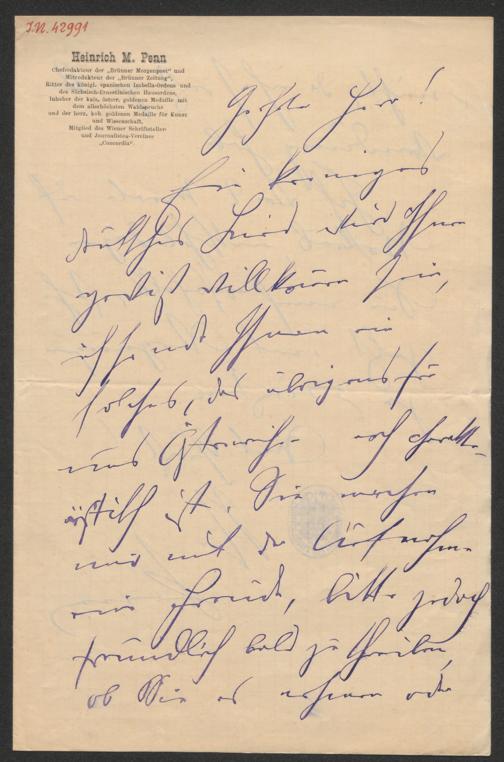 I.N. 42991
Heinrich M. Penn
Chefredakteur der „Brünner Morgenpost“ und
Mitredakteur der „Brünner Zeitung“,
Ritter des königl. spanischen Isabella-Ordens und
des Sächsisch-Ernestinischen Hausordens,
Inhaber der kais. österr. goldenen Medaille mit
dem allerhöchsten Wahlspruche
und der herz. kob. goldenen Medaille für Kunst
und Wissenschaft,
Mitglied des Wiener Schriftsteller-
und Journalisten-Vereines
„Concordia“.
Geehrter Herr!
Ein
deutsches Lied wird Ihnen
gewiß willkommen sein,
ich sende Ihnen ein
solches, das übrigens für
uns Östreicher noch charakte-
ristisch ist. Sie machen
mir mit der Aufnahme
eine Freude, bitte jedoch
freundlich bald zu theilen,
ob Sie es nehmen oder